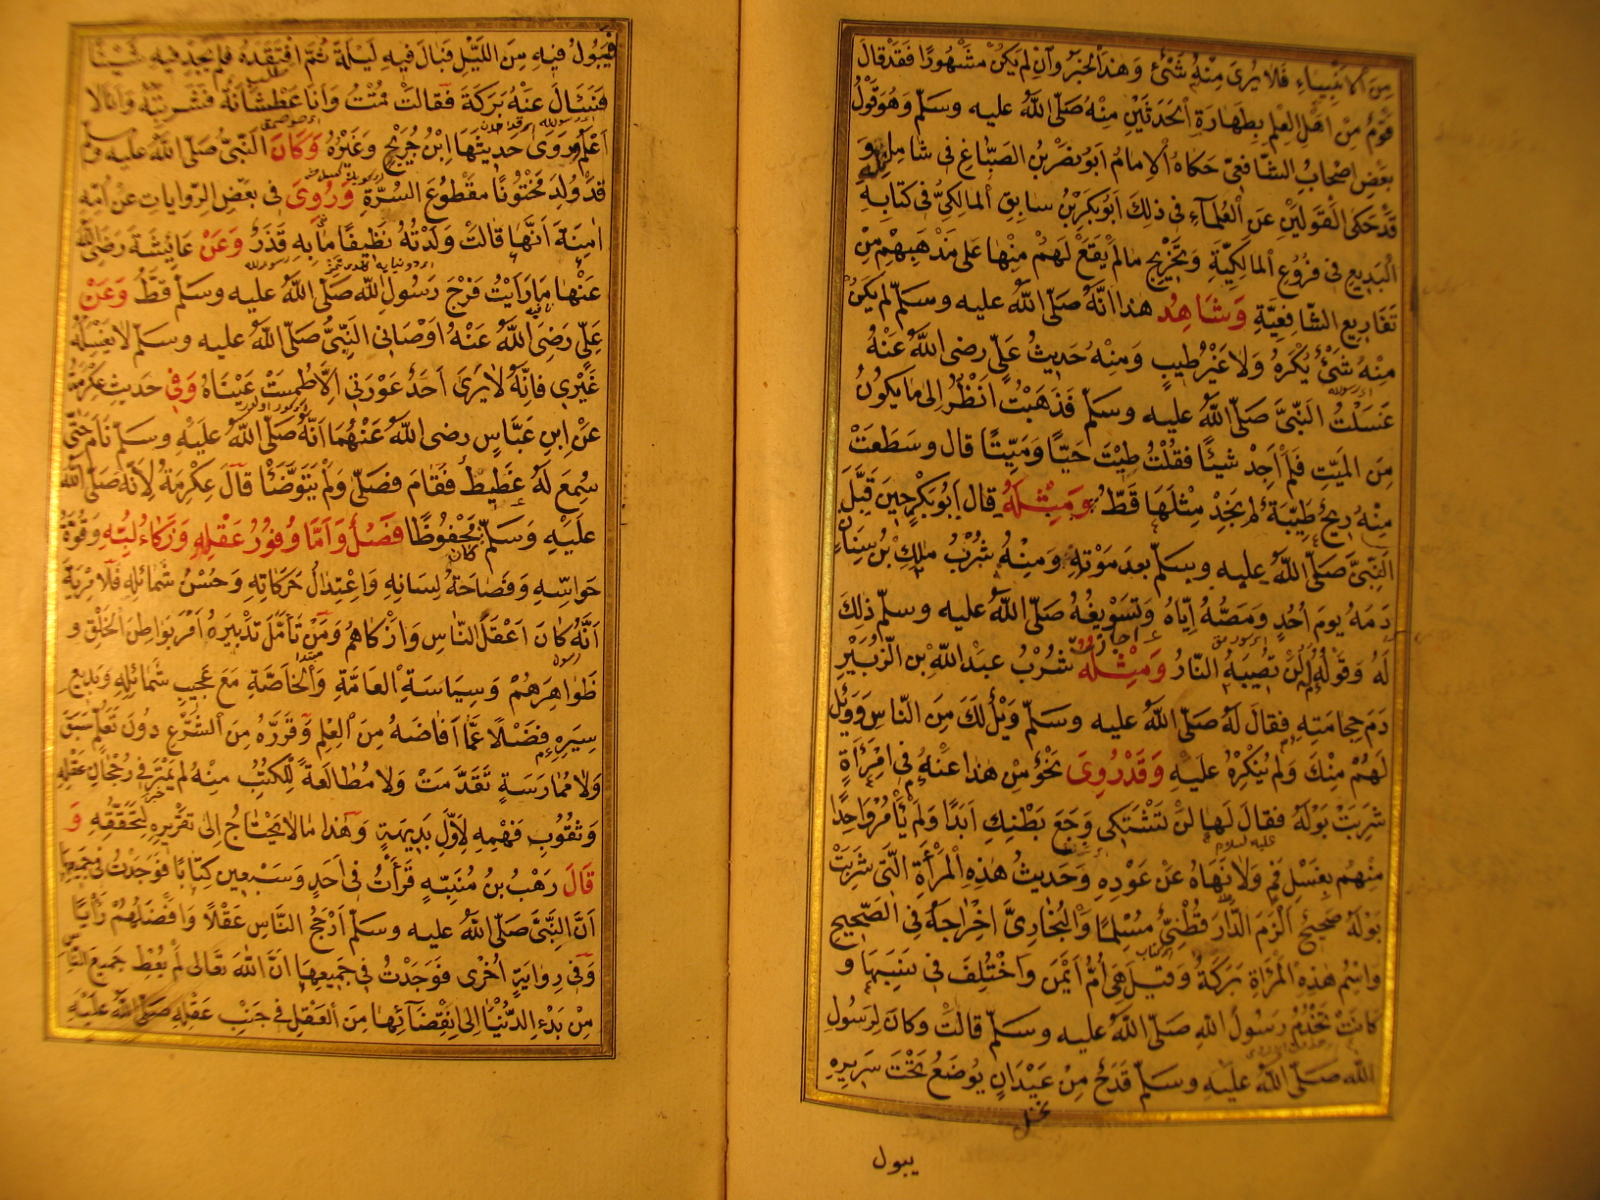 مِنَ الْاَنْبِيَاءِ فَلَا يُرٰى مِنْهُ شَىْءٌ وَهٰذَا الْخَبَرُ وَاِنْ لَمْ يَكُنْ مَشْهُورًا فَقَدْ قَالَ
قَوْمٌ مِنْ اَهْلِ الْعِلْمِ بِطَهَارَةِ الْحَدَثَيْنِ مِنْهُ صَلَّى اللّٰهُ عليه وسلّم وَهُوَ قَوْلُ
بَعْضِ اَصْحَابِ الشَّافِعِىِّ حَكَاهُ الْاِمَامُ اَبُو نَصْرِ بْنُ الصَّبَّاغِ فى شَامِلِهِ وَ
قَدْ حَكَى الْقَوْلَيْنِ عَنِ الْعُلَمَآءِ فى ذٰلِكَ اَبُو بَكْرِ بْنُ سَابِقٍ الْمَالِكِىُّ فى كِتَابِهِ
الْبَدِيعِ فى فُرُوعِ الْمَالِكِيَّةِ وَتَخْرِيجِ مَا لَمْ يَقَعْ لَهُمْ مِنْهَا عَلٰى مَذْهَبِهِمْ مِنْ
تَفَارِيعِ الشَّافِعِيَّةِ وَشَاهِدُ هذا اَنَّهُ صَلَّى اللّٰهُ عليه وسلّم لم يَكُنْ
مِنْهُ شَىْءٌ يُكْرَهُ وَلَا غَيْرُ طَيِّبٍ وَمِنْهُ حَدِيثُ عَلِىٍّ رضى اللّٰه عَنْهُ
غَسَلْتُ النَّبِىَّ صَلَّى اللّٰهُ عليه وسلّم فَذَهَبْتُ اَنْظُرُ اِلٰى مَا يَكُونُ
مِنَ الْمَيِّتِ فَلَمْ اَجِدْ شَيْئًا فَقُلْتُ طِبْتَ حَيًّا وَمَيِّتًا قال وَسَطَعَتْ
مِنْهُ رِيحٌ طَيِّبَةٌ لَمْ نَجِدْ مِثْلَهَا قَطُّ وَمِثْلُهُ قال اَبُو بَكْرٍ حِينَ قَبَّلَ
النَّبِىَّ صَلَّى اللّٰهُ عليه وسلّم بعد مَوْتِهِ وَمِنْهُ شُرْبُ مٰلِكِ بْنِ سِنَانٍ
دَمَهُ يومَ اُحُدٍ وَمَصُّهُ اِيَّاهُ وَتَسْوِيغُهُ صَلَّى اللّٰهُ عليه وسلّم ذٰلِكَ
لَهُ وَقَوْلُهُ لَنْ تُصِيبَهُ النَّارُ وَمِثْلُهُ شُرْبُ عبدِ اللّٰهِ بْنِ الزُّبَيْرِ
دَمَ حِجَامَتِهِ فقالَ لَهُ صَلَّى اللّٰهُ عليه وسلّم وَيْلٌ لَكَ مِنَ النَّاسِ وَوَيْلٌ
لَهُمْ مِنْكَ وَلَمْ يُنْكِرْهُ عَلَيْهِ وَقَدْ رُوِىَ نَحْوٌ مِنْ هٰذَا عَنْهُ فى امْرَأَةٍ
شَرِبَتْ بَوْلَهُ فقالَ لَهَا لَنْ تَشْتَكِى وَجَعَ بَطْنِكِ اَبَدًا وَلَمْ يَأْمُرْ وَاحِدًا
مِنْهُمْ بِغَسْلِ فَمٍ وَلَا نَهَاهُ عَنْ عَوْدِهِ وَحَدِيثُ هٰذِهِ الْمَرْأَةِ الَّتى شَرِبَتْ
بَوْلَهُ صَحِيحٌ اَلْزَمَ الدَّارَقُطْنِىُّ مُسْلِمًا وَالْبُخَارِىَّ اِخْرَاجَهُ فِى الصَّحِيحِ
وَاسْمُ هٰذِهِ الْمَرْاَةِ بَرَكَةُ وَقِيلَ هِىَ اُمُّ اَيْمَنَ وَاخْتُلِفَ فى نَسَبِهَا وَ
كَانَتْ تَخْدُمُ رَسُولَ اللّٰهِ صَلَّى اللّٰهُ عليه وسلّم قَالَتْ وَكانَ لِرَسُولِ
اللّٰهِ صَلَّى اللّٰهُ عَلَيْهِ وسلّم قَدَحٌ مِنْ عَيْدَانٍ يُوضَعُ تَحْتَ سَرِيرِهِ
نخل
يبول
فَيَبُولُ فِيهِ مِنَ اللَّيْلِ فَبَالَ فِيهِ لَيْلَةً ثُمَّ افْتَقَدَهُ فَلَمْ يَجِدْ فِيهِ شَيْئًا
فَسَأَلَ عَنْهُ بَرَكَةَ فَقَالَتْ قُمْتُ وَاَنَا عَطْشَانَةٌ فَشَرِبْتُهُ وَاَنَا لَا
اَعْلَمُ وَرَوٰى حَدِيثَهَا ابْنُ جُرَيْجٍ وَغَيْرُهُ وَكَانَ النَّبِىُّ صَلَّى اللّٰهُ عليه وسلّم
قَدْ وُلِدَ مَخْتُونًا مَقْطُوعَ السُّرَّةِ وَرُوِىَ فى بَعْضِ الرِّوَايَاتِ عَنْ اُمِّهِ
اٰمِنَةَ اَنَّهَا قَالَتْ وَلَدْتُهُ نَظِيفًا مَا بِهِ قَذَرٌ وَعَنْ عَائِشَةَ رَضِىَ اللّٰه
عَنْهَا مَا رَاَيْتُ فَرْجَ رَسُولِ اللّٰه صَلَّى اللّٰهُ عليه وسلّم قَطُّ وَعَنْ
عَلِىٍّ رَضِىَ اللّٰهُ عَنْهُ اَوْصَانِى النَّبِىُّ صَلَّى اللّٰهُ عليه وسلّم لَا يَغْسِلُهُ
غَيْرِى فَاِنَّهُ لَا يَرٰى اَحَدٌ عَوْرَتِى اِلَّا طُمِسَتْ عَيْنَاهُ وَفِى حديثِ عِكْرِمَةَ
عَنْ ابْنِ عَبَّاسٍ رضى اللّٰهُ عَنْهُمَا اَنَّهُ صَلَّى اللّٰهُ عَلَيْهِ وسلّم نَامَ حَتّٰى
سُمِعَ لَهُ غَطِيطٌ فَقَامَ فَصَلَّى وَلَمْ يَتَوَضَّأْ قَالَ عِكْرِمَةُ لِاَنَّهُ صَلَّى اللّٰه
عَلَيْهِ وَسَلَّمَ كان مَحْفُوظًا فَصْلٌ وَاَمَّا وُفُورُ عَقْلِهِ وَذَكَاءُ لُبِّهِ وَقُوَّةُ
حَوَاسِّهِ وَفَصَاحَةُ لِسَانِهِ وَاعْتِدَالُ حَرَكَاتِهِ وَحُسْنُ شَمَائِلِهِ فَلَا مِرْيَةَ
اَنَّهُ كَانَ اَعْقَلَ النَّاسِ وَاَذْكَاهُمْ وَمَنْ تَأَمَّلَ تَدْبِيرَهُ اَمْرَ بَوَاطِنِ الْخَلْقِ وَ
ظَوَاهِرِهُمْ وَسِيَاسَةِ الْعَامَّةِ وَالْخَاصَّةِ مَعَ عَجِيبِ شَمَائِلِهِ وَبَدِيعِ
سِيَرِهِ فَضْلًا عَمَّا اَفَاضَهُ مِنَ الْعِلْمِ وَقَرَّرَهُ مِنَ الشَّرْعِ دُونَ تَعَلُّمٍ سَبَقَ
وَلَا مُمَارَسَةٍ تَقَدَّمَتْ وَلَا مُطَالَعَةٍ لِلْكُتُبِ مِنْهُ لَمْ يَمْتَرِ فِى رُجْحَانِ عَقْلِهِ
وَثُقُوبِ فَهْمِهِ لِاَوَّلِ بَدِيهَةٍ وَهٰذا مَا لَا يَحْتَاجُ اِلٰى تَقْرِيرِهِ لِتَحَقُّقِهِ وَ
قَالَ وَهْبُ بنُ مُنَبِّهٍ قَرَأْتُ فى اَحَدٍ وَسَبْعِينَ كِتَابًا فَوَجَدْتُ فى جَمِيعِهَا
اَنَّ النَّبِىَّ صَلَّى اللّٰهُ عليه وسلّم اَرْجَحُ النَّاسِ عَقْلًا وَاَفْضَلُهُمْ رَأْيًا
وَفى رِوَايَةٍ اُخْرٰى فَوَجَدْتُ فى جَمِيعِهَا اَنَّ اللّٰهَ تَعَالٰى لَمْ يُعْطِ جَمِيعَ النَّاسِ
مِنْ بَدْءِ الدُّنْيَا اِلَى انْقِضَآئِهَا مِنَ الْعَقْلِ فى جَنْبِ عَقْلِهِ صَلَّى اللّٰهُ عَلَيْهِ